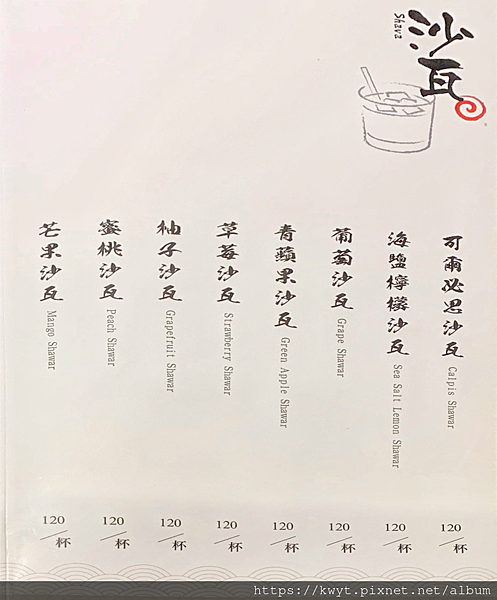 沙瓦
Shava
可爾必思沙瓦 Calpis Shawar
120/杯
海鹽檸檬沙瓦 Sea Salt Lemon Shawar
120/杯
葡萄沙瓦 Grape Shawar
120/杯
青蘋果沙瓦 Green Apple Shawar
120/杯
草莓沙瓦 Strawberry Shawar
120/杯
柚子沙瓦 Grapefruit Shawar
120/杯
蜜桃沙瓦 Peach Shawar
120/杯
芒果沙瓦 Mango Shawar
120/杯
https://kwyt.pixnet.net/album